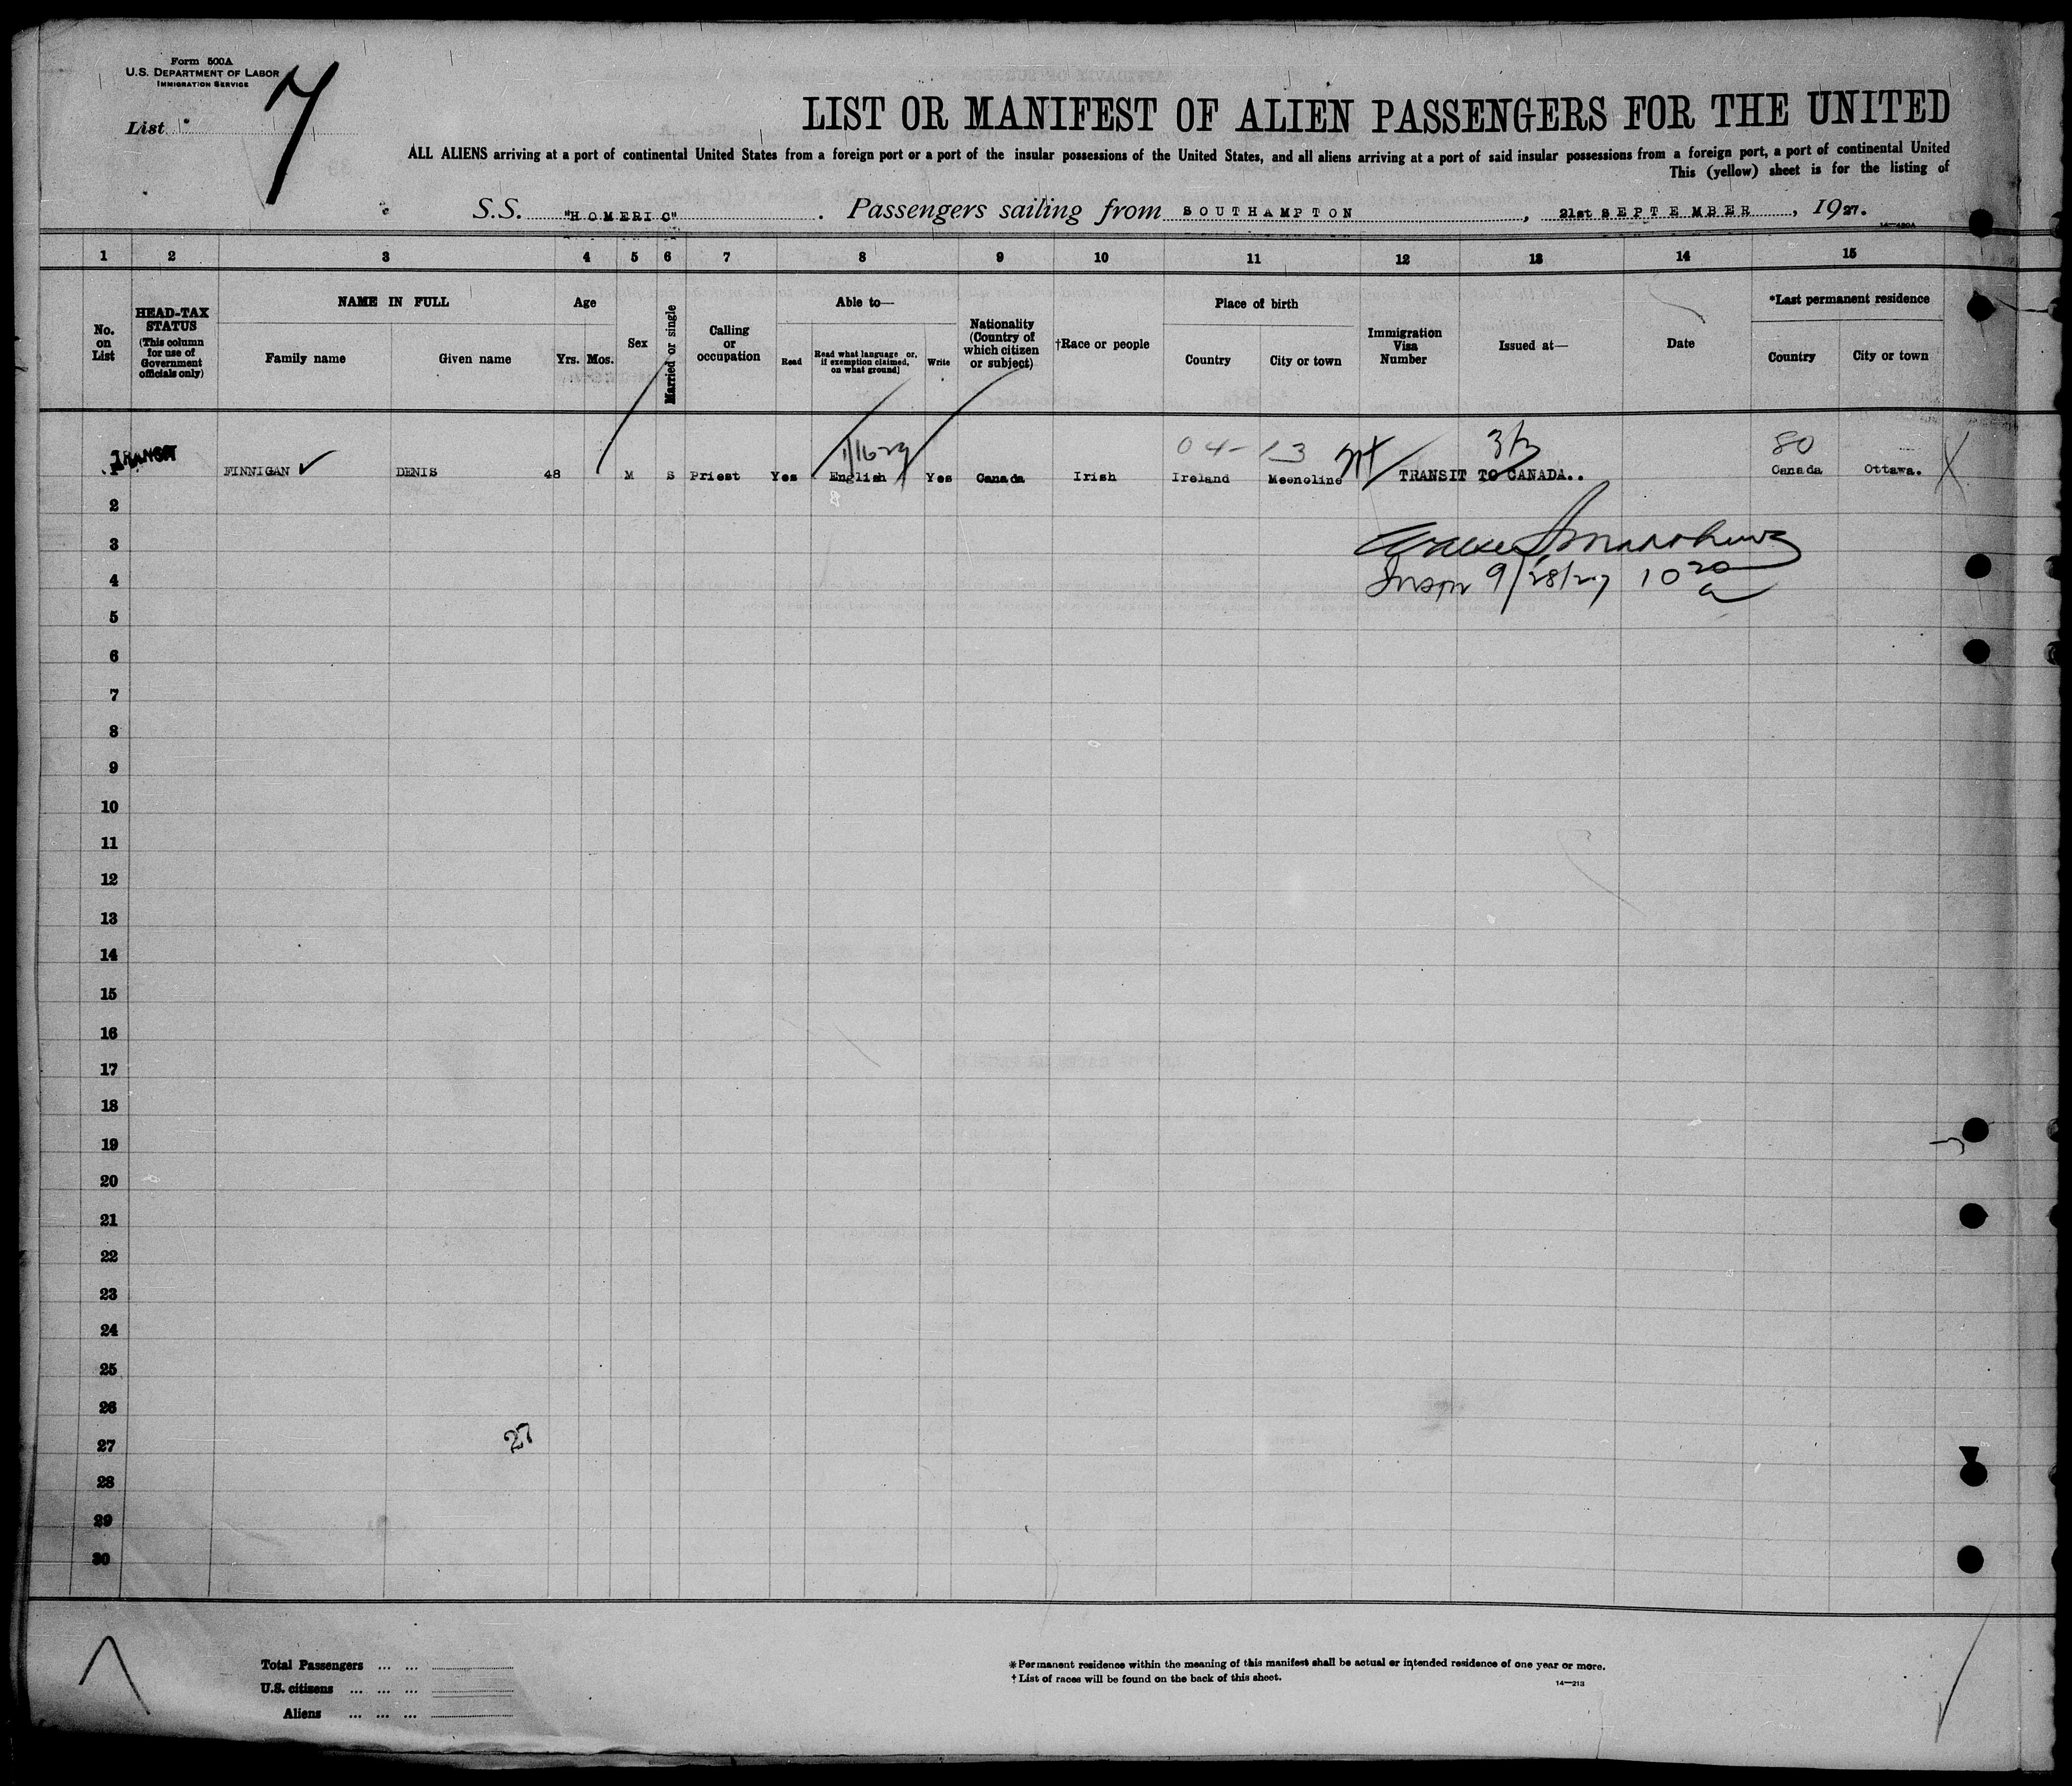 Form 500A
U.S. DEPARTMENT OF LABOR
IMMIGRATION SERVICE
List 7
LIST OR MANIFEST OF ALIEN PASSENGERS FOR THE UNITED
ALL ALIENS arriving at a port of continental United States from a foreign port or a port of the insular possessions of the United States, and all aliens arriving at a port of said insular possessions from a foreign port, a port of continental United
This (yellow) sheet is for the listing of
S.S. "HOMERIC". Passengers sailing from SOUTHAMPTON, 21st SEPTEMBER, 1927.
1 2 3 4 5 6 7 8 9 10 11 12 13 14 15
No. on List
HEAD-TAX STATUS (This column for use of Government officials only)
NAME IN FULL
Family name Given name
Age
Yrs. Mos.
Sex
Married or single
Calling or occupation
Able to—
Read Read what language or, if exemption claimed, on what ground] Write
Nationality (Country of which citizen or subject)
†Race or people
Place of birth
Country City or town
Immigration Visa Number
Issued at—
Date
*Last permanent residence
Country City or town
04-13 80
TRANSIT
1 FINNIGAN DENIS 48 M S Priest Yes English Yes Canada Irish Ireland Meenoline TRANSIT TO CANADA.. Canada Ottawa.
2
3
4
Inspr 9/28/27 10 20 a
5
6
7
8
9
10
11
12
13
14
15
16
17
18
19
20
21
22
23
24
25
26
27 27
28
29
30
Total Passengers ... ...
U.S. citizens ... ... ...
Aliens ... ... ...
*Permanent residence within the meaning of this manifest shall be actual or intended residence of one year or more.
†List of races will be found on the back of this sheet.
14—213